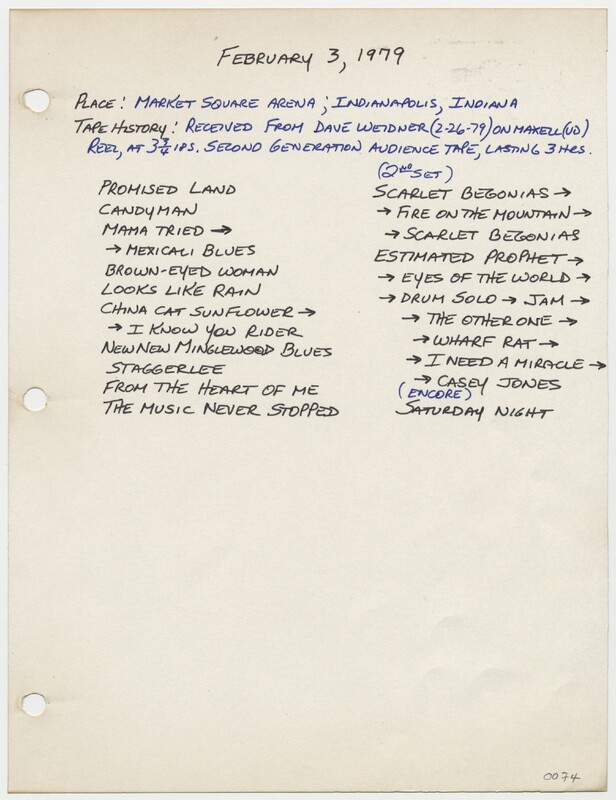 FEBRUARY 3, 1979
PLACE: MARKET SQUARE ARENA; INDIANAPOLIS, INDIANA
TAPE HISTORY: RECEIVED FROM DAVE WEIDNER (2-26-79) ON MAXELL (UD)
REEL, AT 3 3/4 IPS. SECOND GENERATION AUDIENCE TAPE, LASTING 3 HRS.
PROMISED LAND
CANDYMAN
MAMA TRIED →
→ MEXICALI BLUES
BROWN-EYED WOMAN
LOOKS LIKE RAIN
CHINA CAT SUNFLOWER →
→ I KNOW YOU RIDER
NEW NEW MINGLEWOOD BLUES
STAGGERLEE
FROM THE HEART OF ME
THE MUSIC NEVER STOPPED
(2ND SET)
SCARLET BEGONIAS →
→ FIRE ON THE MOUNTAIN →
→ SCARLET BEGONIAS
ESTIMATED PROPHET →
→ EYES OF THE WORLD →
→ DRUM SOLO → JAM →
→ THE OTHER ONE →
→ WHARF RAT →
→ I NEED A MIRACLE →
→ CASEY JONES
(ENCORE)
SATURDAY NIGHT
0074